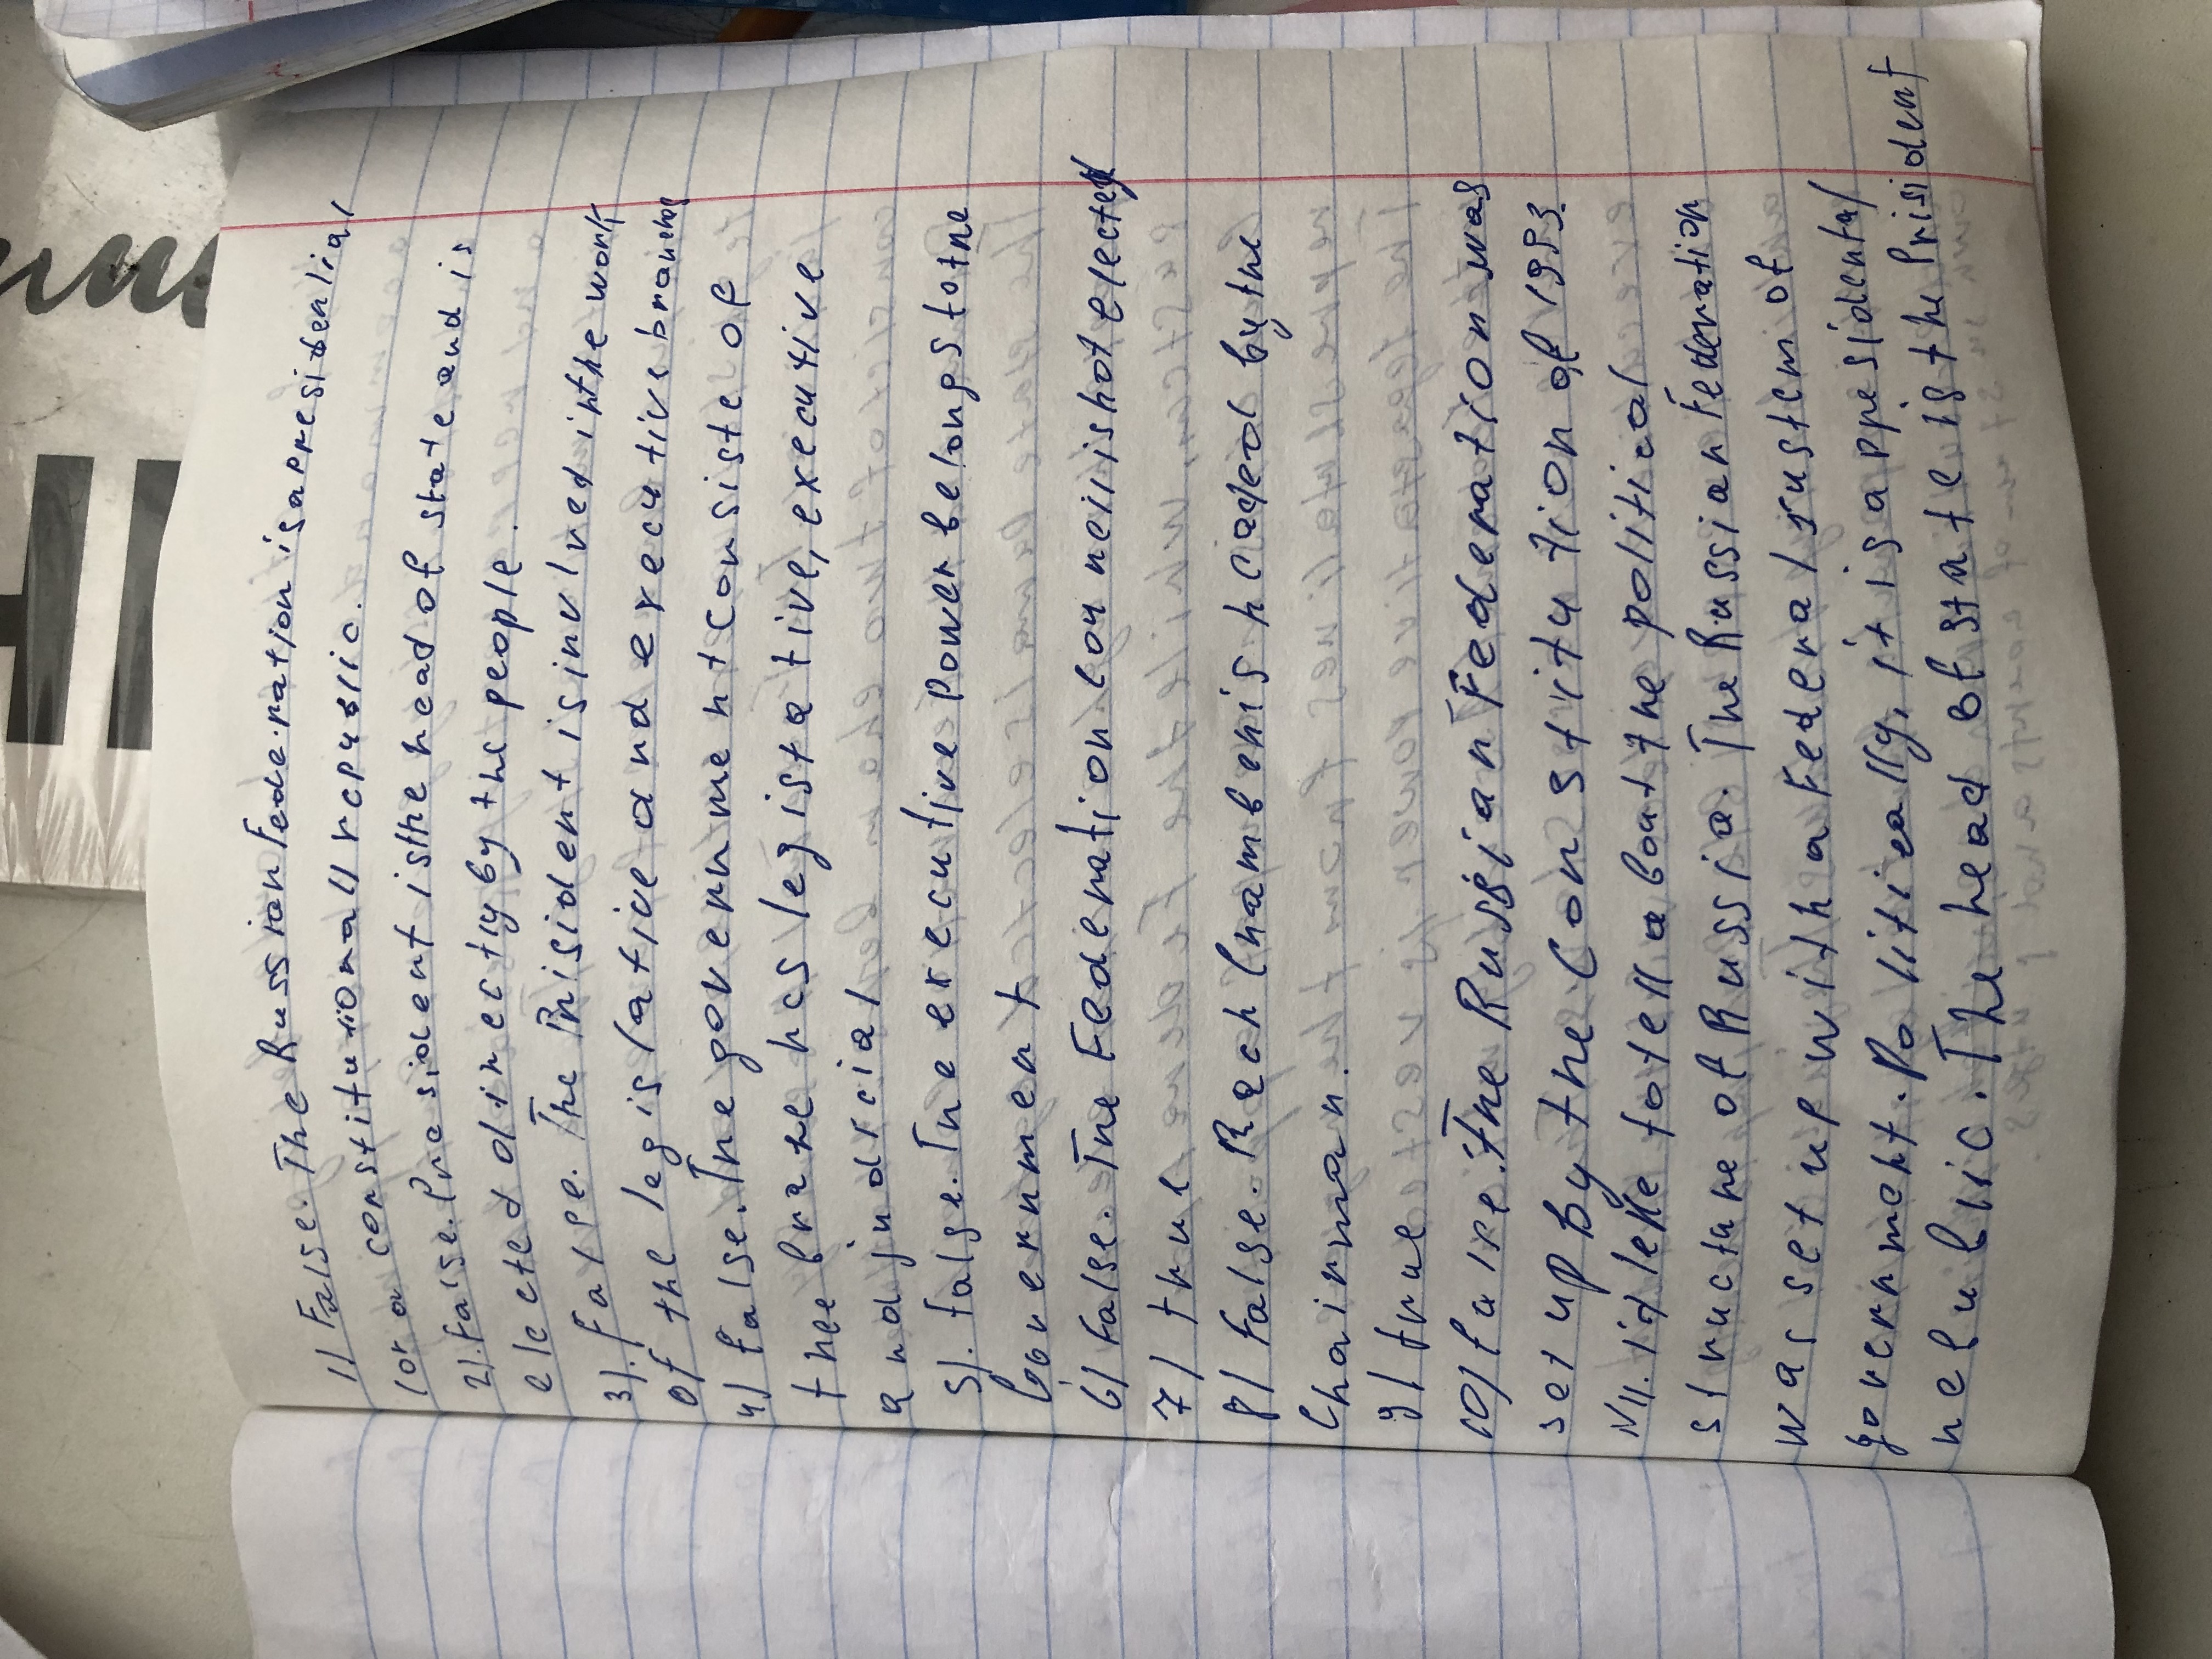 1) False. The Russian Federation is a presidential
(or a constitutional) republic.
2). False. President is the head of state and is
elected directly by the people.
3). False. The Prisident is involved in the work
of the legislative and executive branches
4) False. The government consiste of
thee branches legistative, executive
and judrcial
5). False. The executive power belongs to the
Government
6) False. The Federation council is not elected
7) true
8) False. Each Chamber is headed by the
Chairman.
9) true
10) false. The Russian Federation was
set up by the Constitution of 1993.
VII. id like to tell about the political
structure of Russia. The Russian Federation
was set up with a Federal sustem of
government. Politically, it is a presidental
republic. The head of state is the Prisident